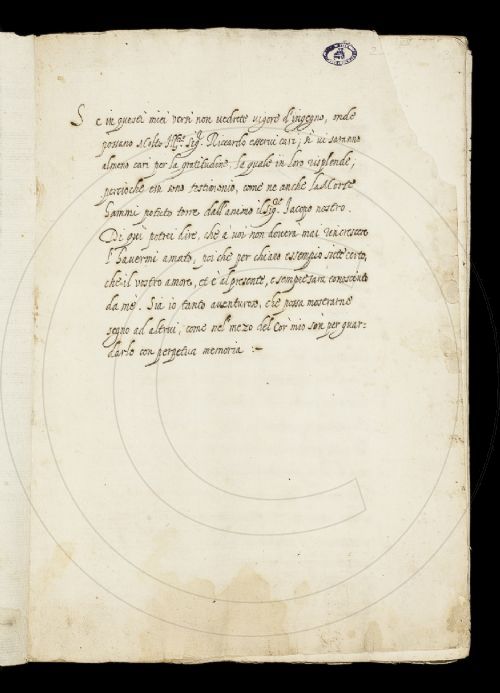 Se in questi miei versi non vedrete vigore d'ingegno, onde
possano Molto Ill.re Sig.r Riccardo esservi cari; Ei vi saranno
almeno cari per la gratitudine, la quale in loro risplende,
percioche essi sono testimonio, come ne anche la Morte
hammi potuto torre dall'animo il Sig.re Jacopo nostro.
Di qui potrei dire, che a voi non dovera mai rencrescere
l'havermi amato, poi che per chiaro essempio siete certo,
che il vostro amore, et è al presente, e sempre sarà conosciuto
da me. Sia io tanto aventuroso, che possa mostrarne
segno ad altrui, come nel mezo del Cor mio son per guar-
darlo con perpetua memoria :~